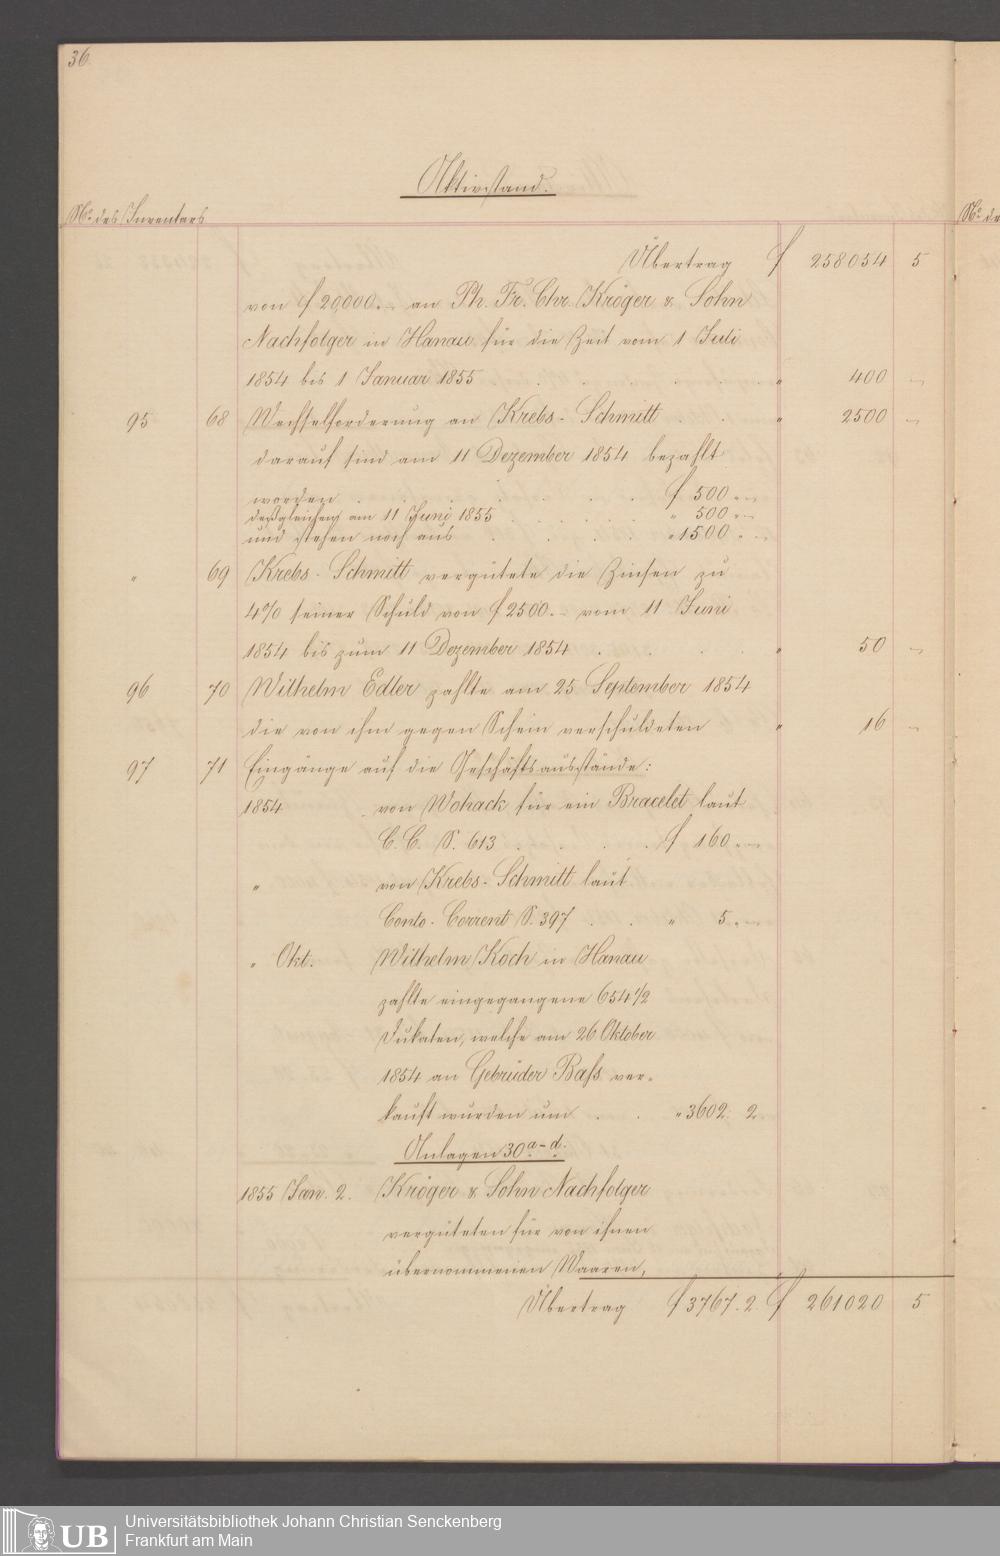 36.
Aktivstand.
No. des Inventars
No. de
Übertrag f 258054 5
von f 20,000.– an Ph. Fr. Chr. Kröger & Sohn
Nachfolger in Hanau für die Zeit vom 1 Juli
1854 bis 1 Januar 1855 . . . . . . " 400 –
95 68 Wechselforderung an Krebs-Schmitt . . " 2500 –
darauf sind am 11 Dezember 1854 bezahlt
worden . . . . . . . f 500.–
deßgleichen am 11 Juni 1855 . . . . . " 500.–
und stehen noch aus . . . . . " 1500.–
" 69 Krebs-Schmitt vergütete die Zinsen zu
4% seiner Schuld von f 2500.– vom 11 Juni
1854 bis zum 11 Dezember 1854 . . . . " 50 –
96 70 Wilhelm Edler zahlte am 25 September 1854
die von ihm gegen Schein verschuldeten " 16 –
97 71 Eingänge auf die Geschäftsausstände:
1854 von Wohack für ein Bracelet laut
C. C. S. 613 . . . . f 160.–
" von Krebs-Schmitt laut
Conto-Corrent S. 397 . . " 5.–
" Okt. Wilhelm Koch in Hanau
zahlte eingegangene 654 1/2
Dukaten, welche am 26 Oktober
1854 an Gebrüder Baſs ver-
kauft wurden um . . " 3602. 2.
Anlagen 30 a-d.
1855 Jan. 2. Kröger & Sohn Nachfolger
vergüteten für von ihnen
übernommenen Waaren,
Übertrag f 3767. 2. f 261020 5
UB
Universitätsbibliothek Johann Christian Senckenberg
Frankfurt am Main